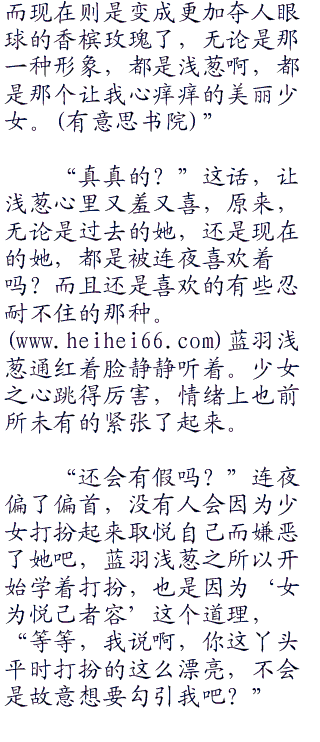 而现在则是变成更加夺人眼
球的香槟玫瑰了，无论是那
一种形象，都是浅葱啊，都
是那个让我心痒痒的美丽少
女。(有意思书院)”
“真真的？”这话，让
浅葱心里又羞又喜，原来，
无论是过去的她，还是现在
的她，都是被连夜喜欢着
吗？而且还是喜欢的有些忍
耐不住的那种。
(www.heihei66.com)蓝羽浅
葱通红着脸静静听着。少女
之心跳得厉害，情绪上也前
所未有的紧张了起来。
“还会有假吗？”连夜
偏了偏首，没有人会因为少
女打扮起来取悦自己而嫌恶
了她吧，蓝羽浅葱之所以开
始学着打扮，也是因为‘女
为悦己者容’这个道理，
“等等，我说啊，你这丫头
平时打扮的这么漂亮，不会
是故意想要勾引我吧？”